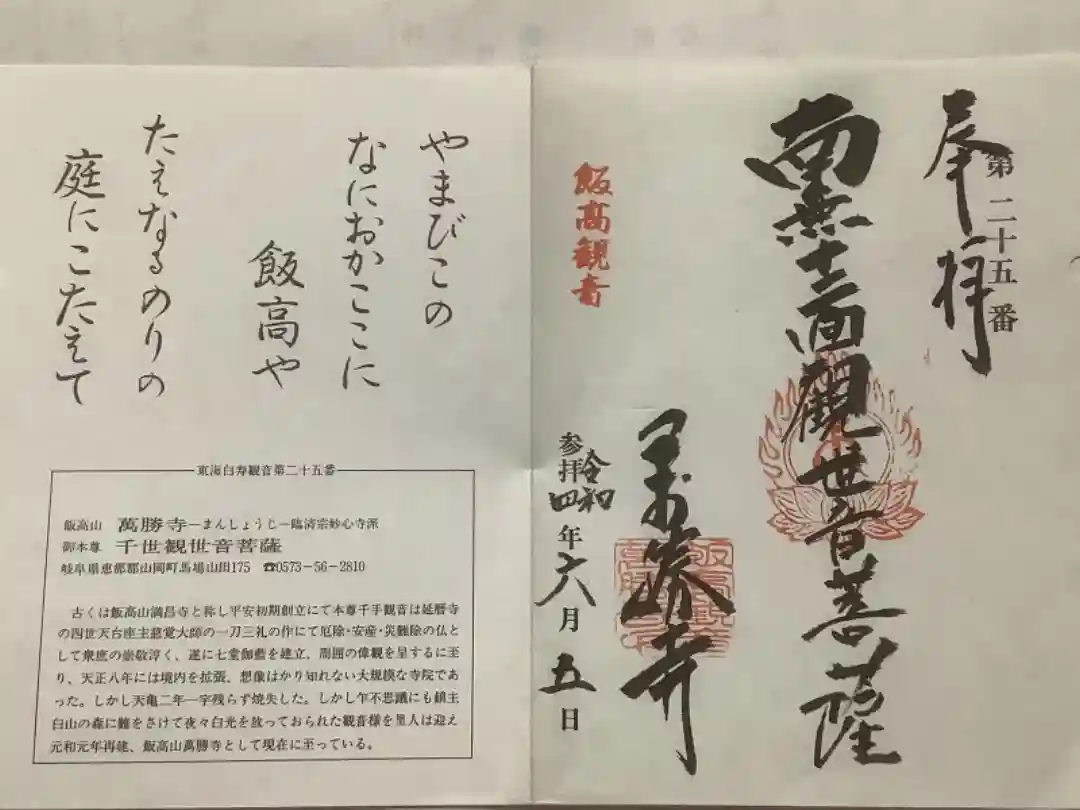 第二十五番
奉拝
南無十一面観世音菩薩
万勝寺
飯高観音
参拝 令和四年六月五日
やまびこの
なにおかここに
飯高や
たえなるのりの
庭にこたえて
東海白寿観音第二十五番
飯高山 萬勝寺―まんしょうじ―臨済宗妙心寺派
御本尊 千世観世音菩薩
岐阜県恵那郡山岡町馬場山田175 ☎0573-56-2810
古くは飯高山満昌寺と称し平安初期創立にて本尊千手観音は延暦寺
の四世天台座主慈覚大師の一刀三礼の作にて厄除・安産・災難除の仏と
して衆庶の崇敬淳く、遂に七堂伽藍を建立、周囲の偉観を呈するに至
り、天正八年には境内を拡張、想像はかり知れない大規模な寺院であ
った。しかし天亀二年一字残らず焼失した。しかし乍不思議にも鎮主
白山の森に難をさけて夜々白光を放っておられた観音様を里人は迎え
元和元年再建、飯高山萬勝寺として現在に至っている。